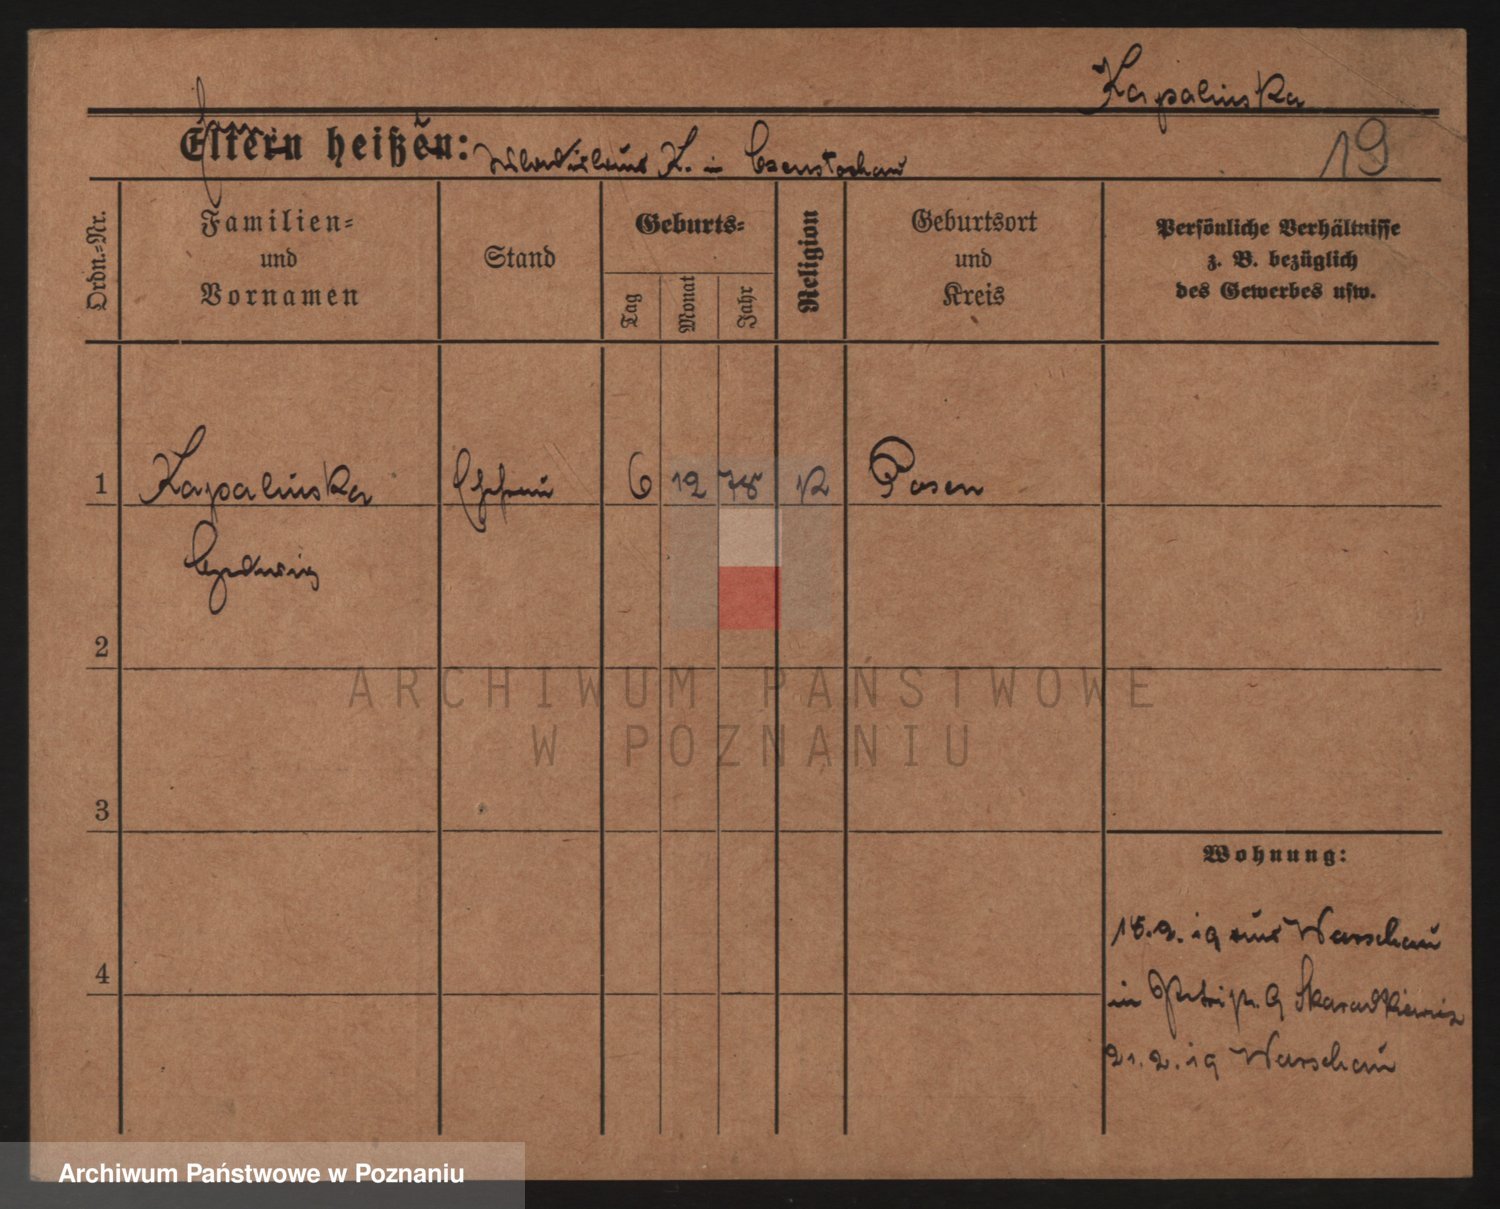 Kapalinska
19
Eltern heißen: Wladislaus K. in Czenstochau
Ordn.-Nr.
Familien-
und
Vornamen
Stand
Geburts-
Tag
Monat
Jahr
Religion
Geburtsort
und
Kreis
Persönliche Verhältnisse
z. B. bezüglich
des Gewerbes usw.
1 Kapalinska Ehefrau 6 12 78 K Posen
Hedwig
2
3
4
Wohnung:
15.2.19 aus Warschau
in 9
21.2.19 Warschau
ARCHIWUM PAŃSTWOWE
W POZNANIU
Archiwum Państwowe w Poznaniu